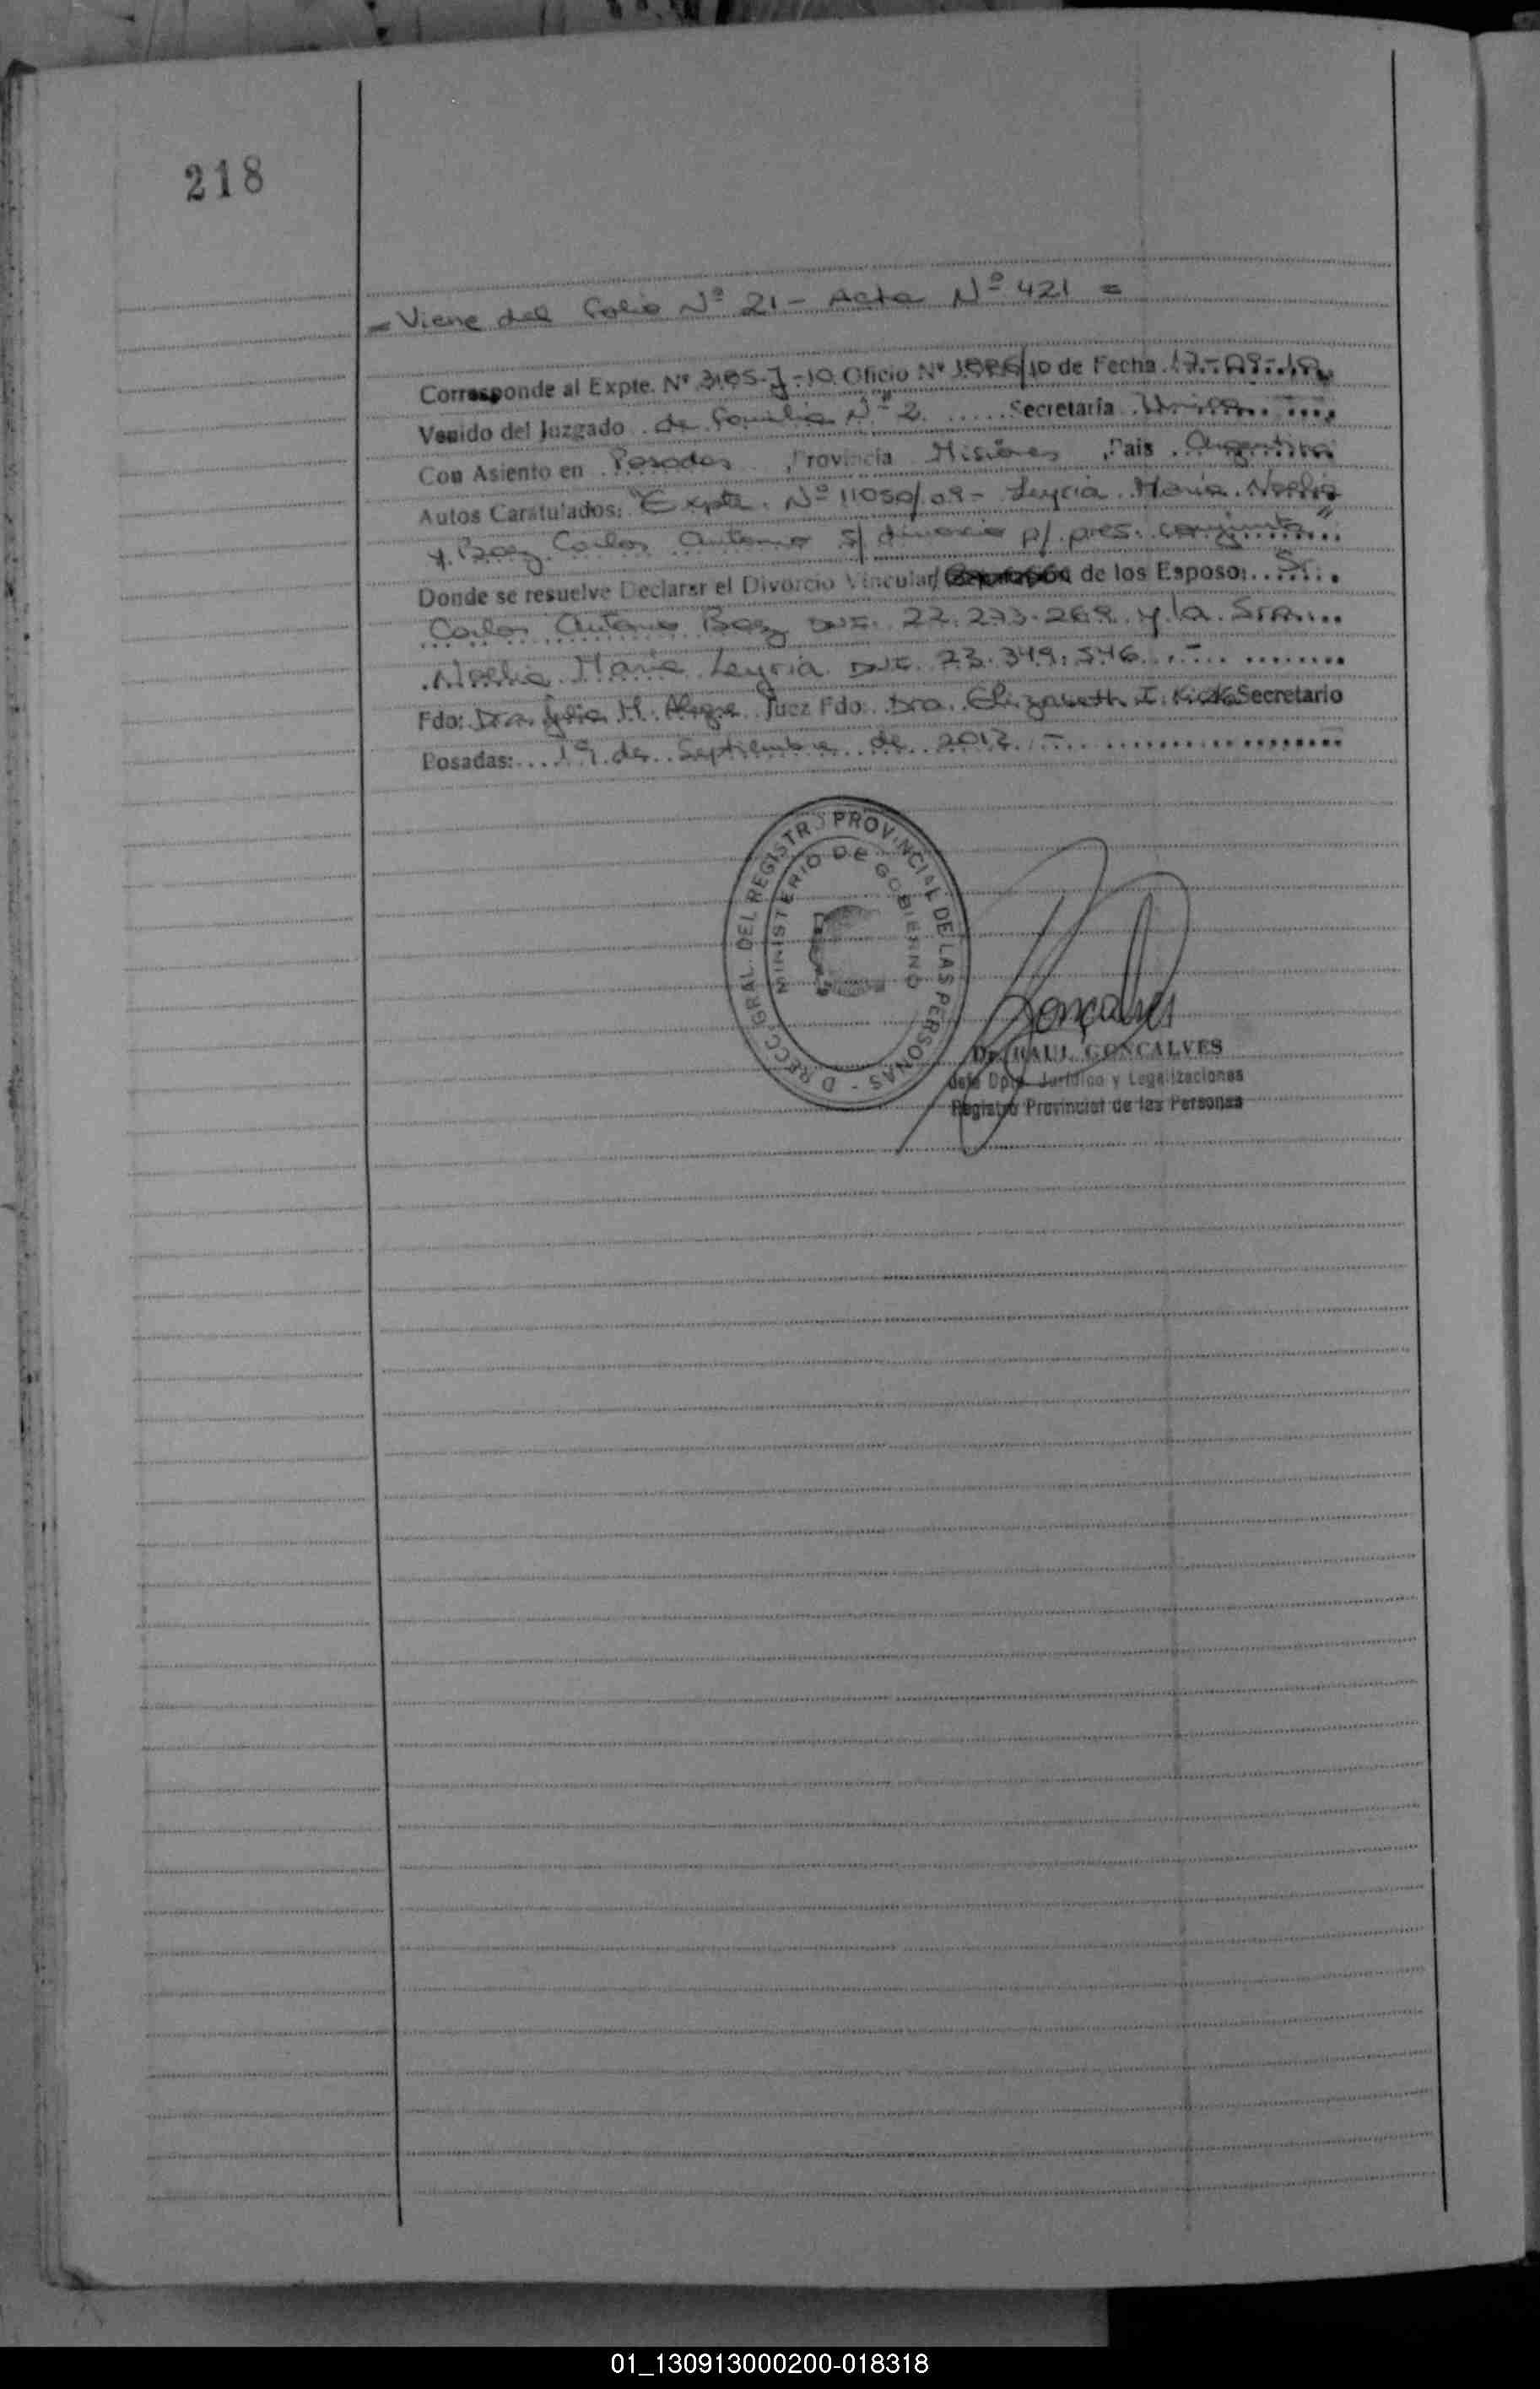 218
= Viene del Folio Nº 21 - Acta Nº 421 =
Corresponde al Expte. Nº 3185-J-10 Oficio Nº /10 de Fecha 17-09-10
Venido del Juzgado de Familia Nº 2 Secretaría Única
Con Asiento en Posadas Provincia Misiones País Argentina
Autos Caratulados: "Expte. Nº 11050/09 - Leyria Maria Noelia
y Baez Carlos Antonio s/ divorcio p/ pres. conjunta"
Donde se resuelve Declarar el Divorcio Vincular/ de los Esposo: Sr.
Carlos Antonio Baez DNI. 22.273.269 y la Sra.
Noelia Maria Leyria DNI. 23.349.546 . -
Fdo: Dra. Julia M. Alegre Juez Fdo: Dra. Elizabeth I. Secretario
Posadas: 19 de Septiembre de 2012 . -
DIRECC. GRAL. DEL REGISTRO PROVINCIAL DE LAS PERSONAS -
MINISTERIO DE GOBIERNO
Gonçalves
Dr. RAUL GONCALVES
Jefe Dpto. Jurídico y Legalizaciones
Registro Provincial de las Personas
01_130913000200-018318